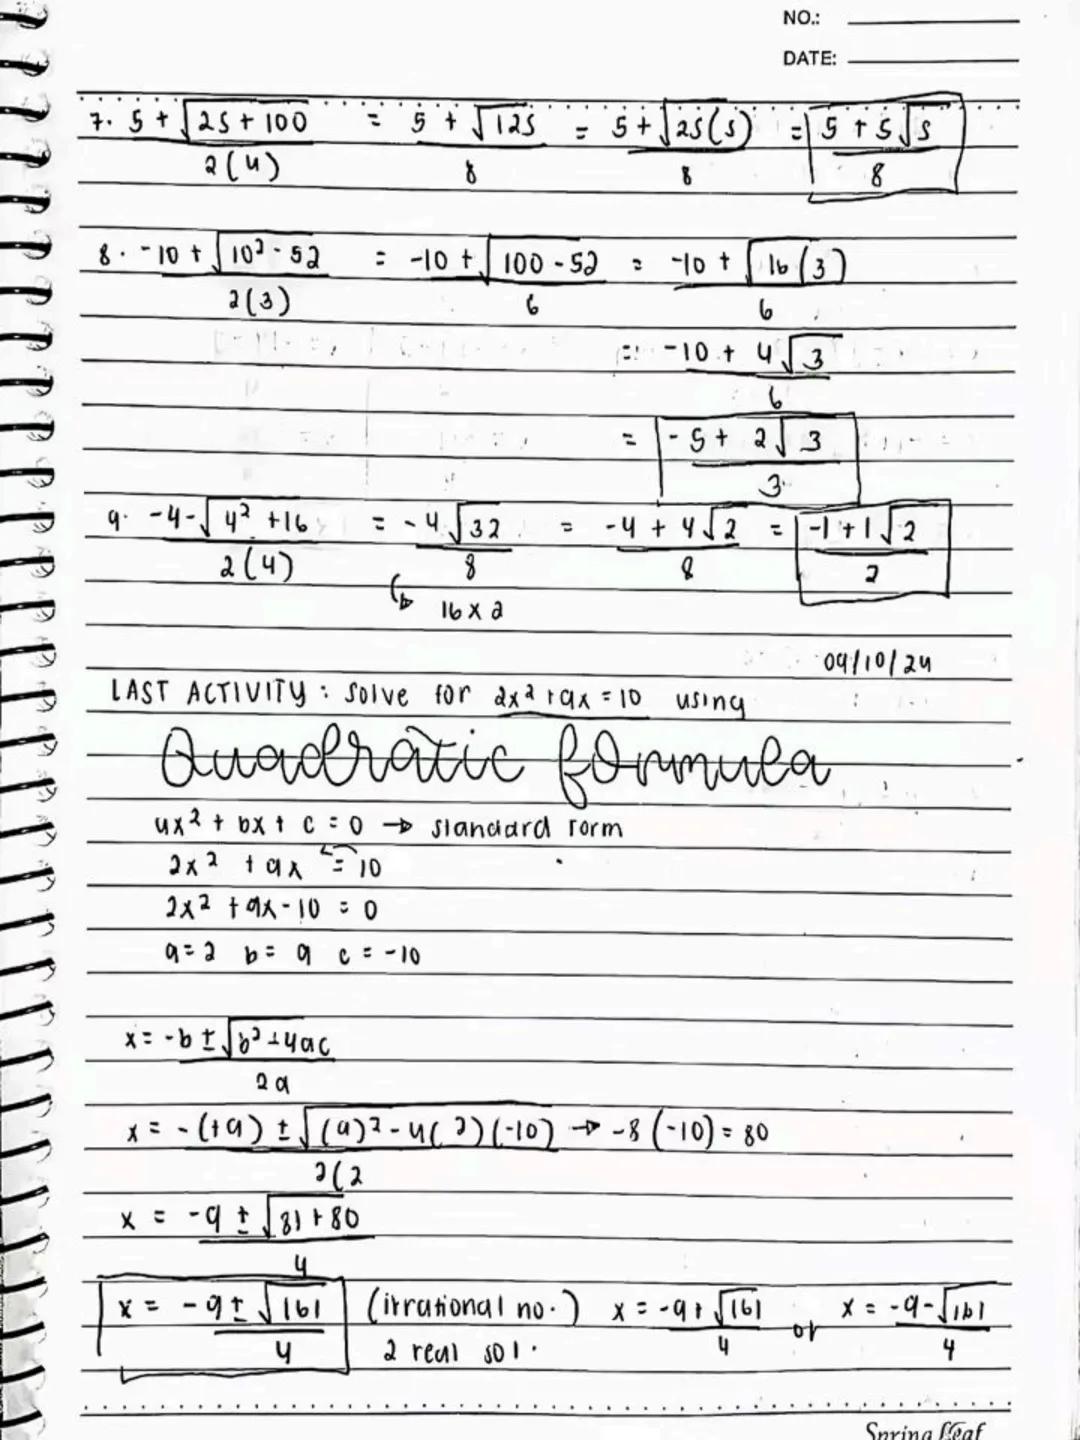 NO.:
DATE:
7. 5 + √25 + 100 / 2(4) = 5 + √125 / 8 = 5 + √25(5) / 8 = 5 + 5√5 / 8
8. -10 + √10² - 52 / 2(3) = -10 + √100 - 52 / 6 = -10 + √16(3) / 6
= -10 + 4√3 / 6
= -5 + 2√3 / 3
9. -4 - √4² + 16 / 2(4) = -4√32 / 8 = -4 + 4√2 / 8 = -1 + 1√2 / 2
↳ 16 x 2
09/10/24
LAST ACTIVITY: Solve for 2x² + 9x = 10 using
Quadratic formula
ax² + bx + c = 0 → standard form
2x² + 9x = 10
2x² + 9x - 10 = 0
a = 2 b = 9 c = -10
x = -b ± √b² + 4ac / 2a
x = -(+9) ± √(9)² - 4(2)(-10) / 2(2 → -8(-10) = 80
x = -9 ± √81 + 80 / 4
x = -9 ± √161 / 4 (irrational no.) x = -9 + √161 / 4 or x = -9 - √161 / 4
2 real sol.
Spring Leaf